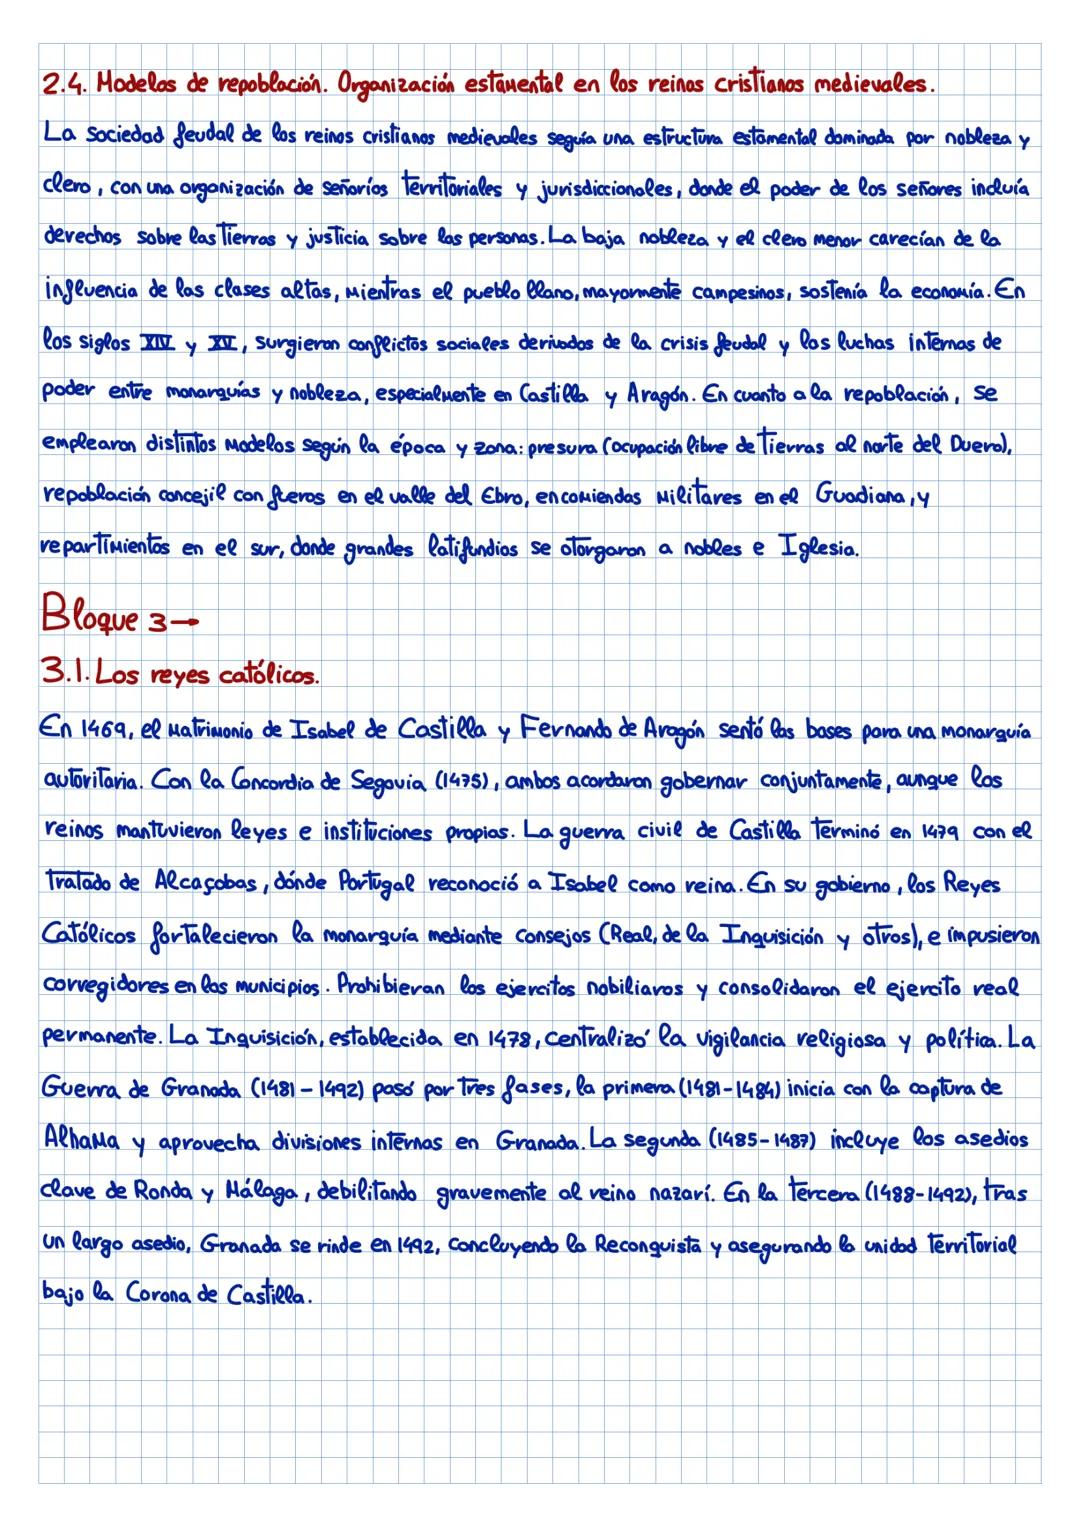 2.4. Modelos de repoblación. Organización estamental en los reinos cristianos medievales.
La sociedad feudal de los reinos cristianos medievales seguía una estructura estamental dominada por nobleza y
clero, con una organización de señoríos territoriales y jurisdiccionales, donde el poder de los señores incluía
derechos sobre las tierras y justicia sobre las personas. La baja nobleza y el clero menor carecían de la
influencia de las clases altas, mientras el pueblo llano, mayormente campesinos, sostenía la economía. En
los siglos XIV y XV, surgieron conflictos sociales derivados de la crisis feudal y las luchas internas de
poder entre monarquías y nobleza, especialmente en Castilla y Aragón. En cuanto a la repoblación, se
emplearon distintos modelos según la época y zona: presura (ocupación libre de tierras al norte del Duero),
repoblación concejil con fueros en el valle del Ebro, encomiendas militares en el Guadiana, y
repartimientos en el sur, donde grandes latifundios se otorgaron a nobles e Iglesia.
Bloque 3→
3.1. Los reyes católicos.
En 1469, el matrimonio de Isabel de Castilla y Fernando de Aragón sentó las bases para una monarquía
autoritaria. Con la Concordia de Segovia (1475), ambos acordaron gobernar conjuntamente, aunque los
reinos mantuvieron leyes e instituciones propias. La guerra civil de Castilla terminó en 1479 con el
tratado de Alcaçobas, dónde Portugal reconoció a Isabel como reina. En su gobierno, los Reyes
Católicos fortalecieron la monarquía mediante consejos (Real, de la Inquisición y otros), e impusieron
corregidores en los municipios. Prohibieran los ejercitos nobiliaros y consolidaron el ejercito real
permanente. La Inquisición, establecida en 1478, centralizó la vigilancia religiosa y política. La
Guerra de Granada (1481-1492) pasó por tres fases, la primera (1481-1484) inicia con la captura de
Alhama y aprovecha divisiones internas en Granada. La segunda (1485-1487) incluye los asedios
clave de Ronda y Málaga, debilitando gravemente al reino nazarí. En la tercera (1488-1492), tras
un largo asedio, Granada se rinde en 1492, concluyendo la Reconquista y asegurando la unidad territorial
bajo la Corona de Castilla.